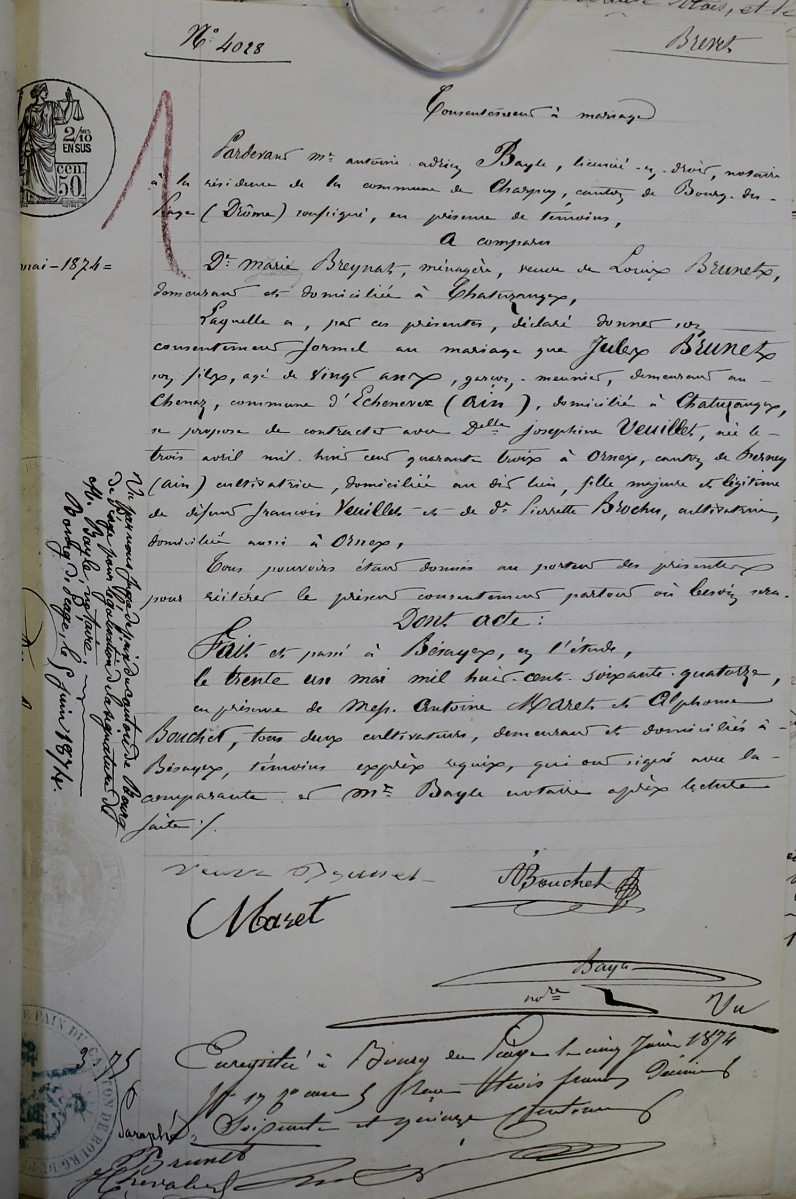 N° 4028
Brevet
Consentement à mariage
2/10
EN SUS
CEN.
50.
Pardevant Me antoine adrien Bayle, licencié en droit, notaire
à la résidence de la commune de Charpey, canton de Bourg-des-
Péage (Drôme) soussigné, en présence de témoins,
A comparu
mai-1874=
De marie Breynat, ménagère, veuve de Louix Brunetx,
demeurant et domiciliée à Chatuzangex,
Laquelle a, par ces présentes, déclaré donner son
consentement formel au mariage que Julex Brunetx
son filx, agé de vingt anx, garçon meunier, demeurant au
Chenaz, commune d'Echenevex (ain), domicilié à Chatuzangex,
se propose de contracter avec Delle Josephine Veuillet, née le
trois avril mil huit cent quarante troix à Ornex, canton de Ferney
(ain) cultivatrice, domiciliée au dit lieu, fille majeure et légitime
de défunt francois Veuillet et de de Pierrette Brochu, cultivatrice,
domiciliée aussi à Ornex,
Tous pouvoirs étant donnés au porteur des présentex
pour réitérer le présent consentement partout où besoin sera.
Dont acte:
Fait et passé à Bésayex, en l'étude,
le trente un mai mil huit cent soixante quatorze,
en présence de Mess. Antoine Maret et Alphonse
Bouchet, tous deux cultivateurs, demeurant et domiciliés à
Bésayex, témoins exprèx requix, qui ont signé avec la
comparante et Me Bayle notaire aprèx lecture
faite ./.
Vu par nous Juge de paix du canton de Bourg
de Péage pour légalisation de la signature de
M. Bayle, notaire
Bourg de Péage, le 5 Juin 1874.
veuve Brunet
ABouchet
Maret
Bayle
nore
Vu
3 75
Enregistré à Bourg de Péage le cinq Juin 1874
trois francs Décimes
Soixante et quinze Centimes
Paraphé
Brunet
Chevalier
PAIX DU CANTON DE BOURG